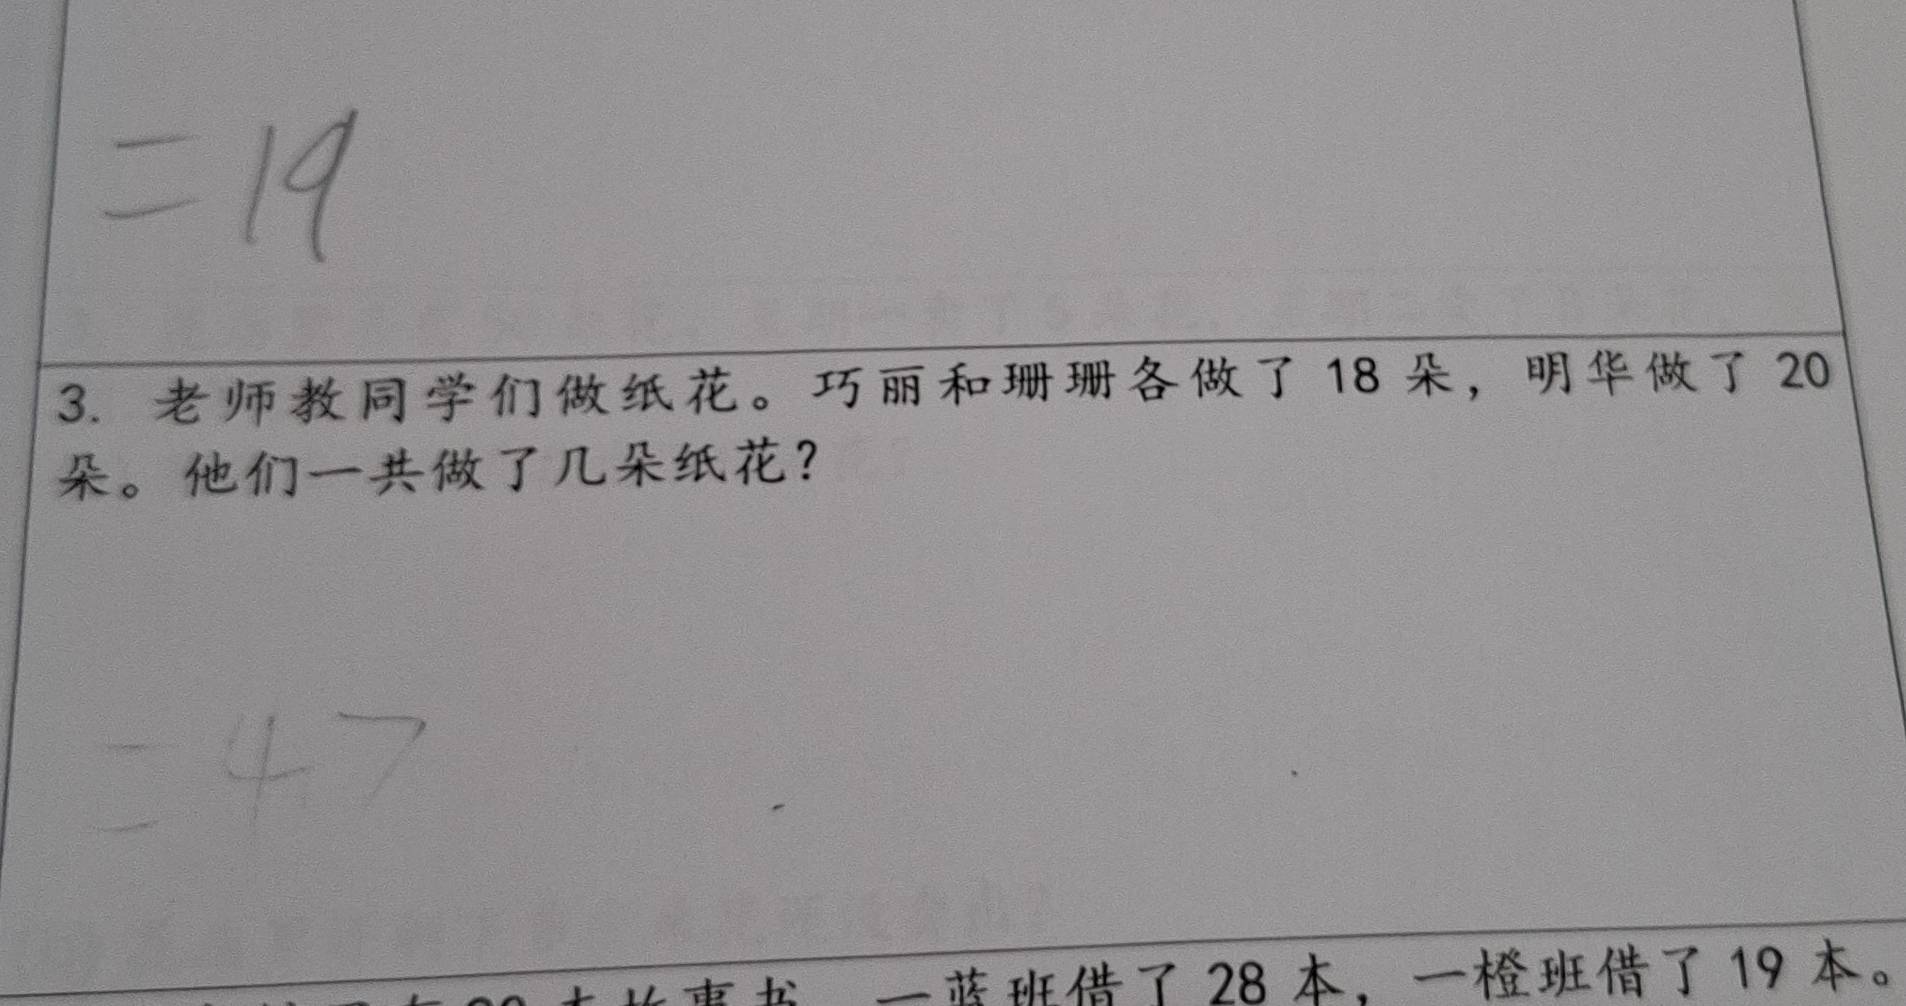 =19
3. 老师教同学们做纸花。巧丽和珊珊各做了 18 朵，明华做了 20
朵。他们一共做了几朵纸花？
=47
本故事书 一蓝班借了 28 本，一橙班借了 19 本。